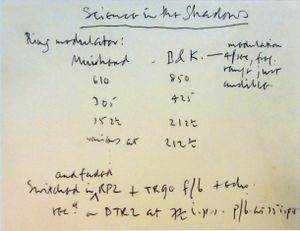 Science in the Shadows
Ring modulator:
Muirhead B & K — modulation
4/sec, freq.
range just
audible.
610 850
305 425
152½ 212½
at 212½
and faded
Switched in RP2 + TR90 f/b + echo.
rec'd on DTR2 at 7½ i.p.s. p/b at 15 i.p.s